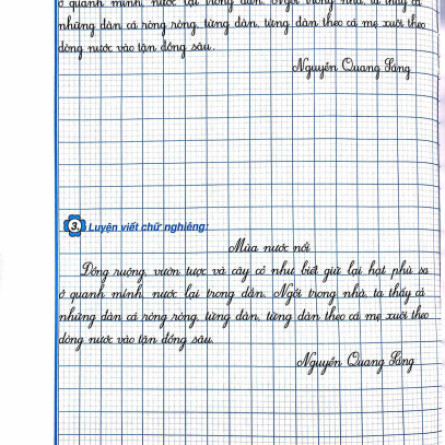 ở quanh mình, nước lại trong dần. Ngồi trong nhà, ta thấy cả
những đàn cá ròng ròng, từng đàn, từng đàn theo cá mẹ xuôi theo
dòng nước vào tận đồng sâu.
Nguyễn Quang Sáng
3. Luyện viết chữ nghiêng:
Mùa nước nổi
Đồng ruộng, vườn tược và cây cỏ như biết giữ lại hạt phù sa
ở quanh mình, nước lại trong dần. Ngồi trong nhà, ta thấy cả
những đàn cá ròng ròng, từng đàn, từng đàn theo cá mẹ xuôi theo
dòng nước vào tận đồng sâu.
Nguyễn Quang Sáng